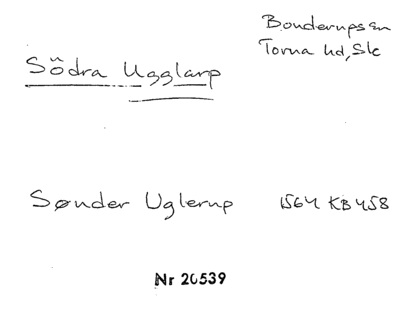 Bonderups sn
Torna hd, Sk
Södra Ugglarp
Sønder Uglerup 1564 KB 458
Nr 20539